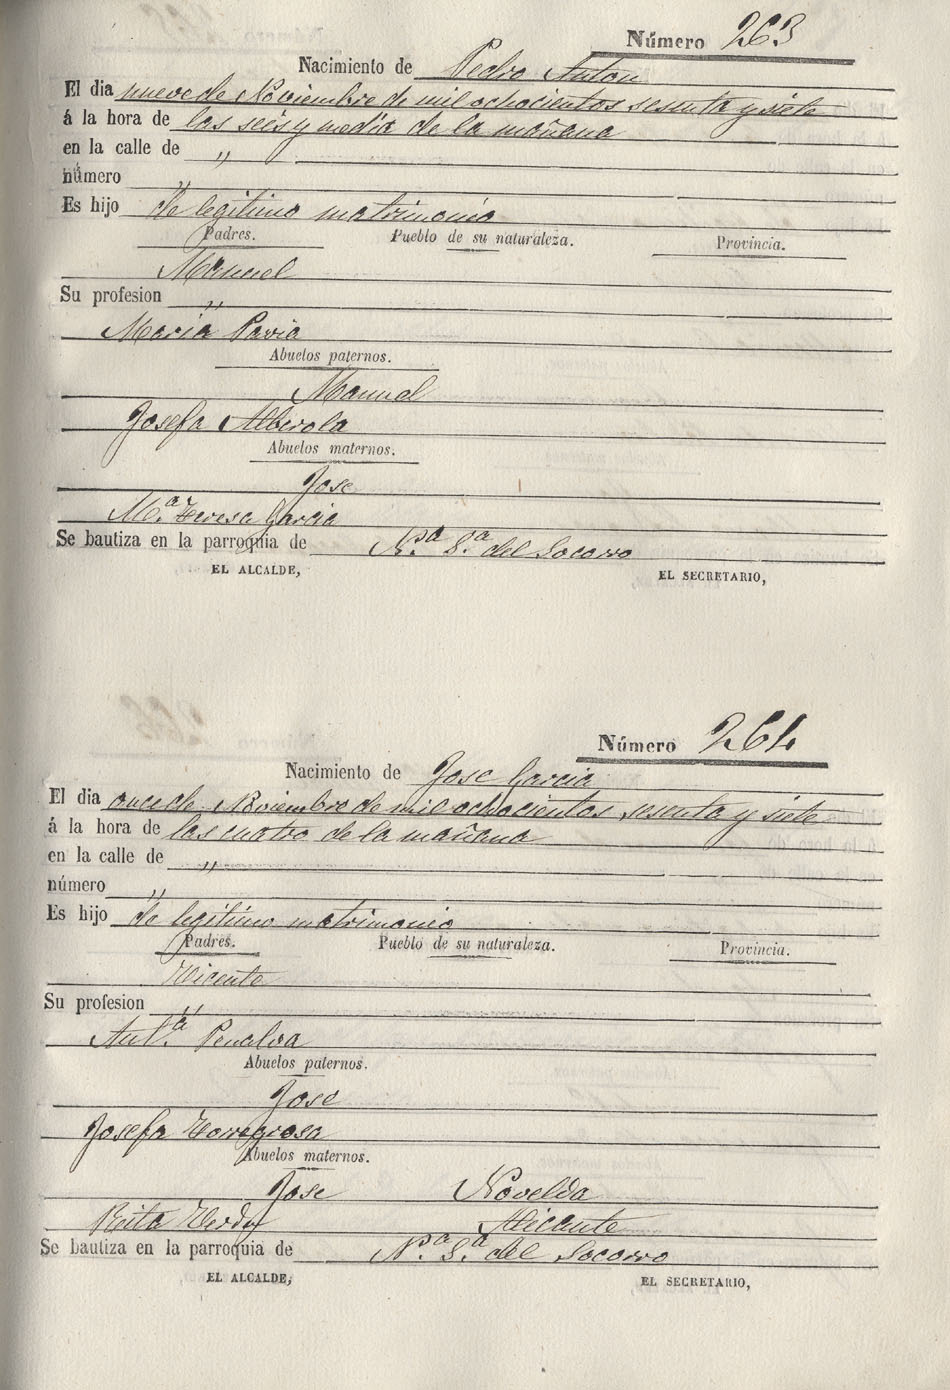 Número 263
Nacimiento de Pedro Anton
El dia nueve de Noviembre de mil ochocientos sesenta y siete
á la hora de las seis y media de la mañana
en la calle de "
número "
Es hijo de legitimo matrimonio
Padres. Pueblo de su naturaleza. Provincia.
Manuel
Su profesion "
Maria Pavia
Abuelos paternos.
Manuel
Josefa Alberola
Abuelos maternos.
Jose
M.ª Teresa Garcia
Se bautiza en la parroquia de N.ª S.ª del Socorro
EL ALCALDE, EL SECRETARIO,
Número 264
Nacimiento de Jose Garcia
El dia once de Noviembre de mil ochocientos sesenta y siete
á la hora de las cuatro de la mañana
en la calle de "
número "
Es hijo de legitimo matrimonio
Padres. Pueblo de su naturaleza. Provincia.
Vicente
Su profesion "
Ant.ª Penalva
Abuelos paternos.
Jose
Josefa Torregrosa
Abuelos maternos.
Jose Novelda
Rita Verdu Alicante
Se bautiza en la parroquia de N.ª S.ª del Socorro
EL ALCALDE, EL SECRETARIO,